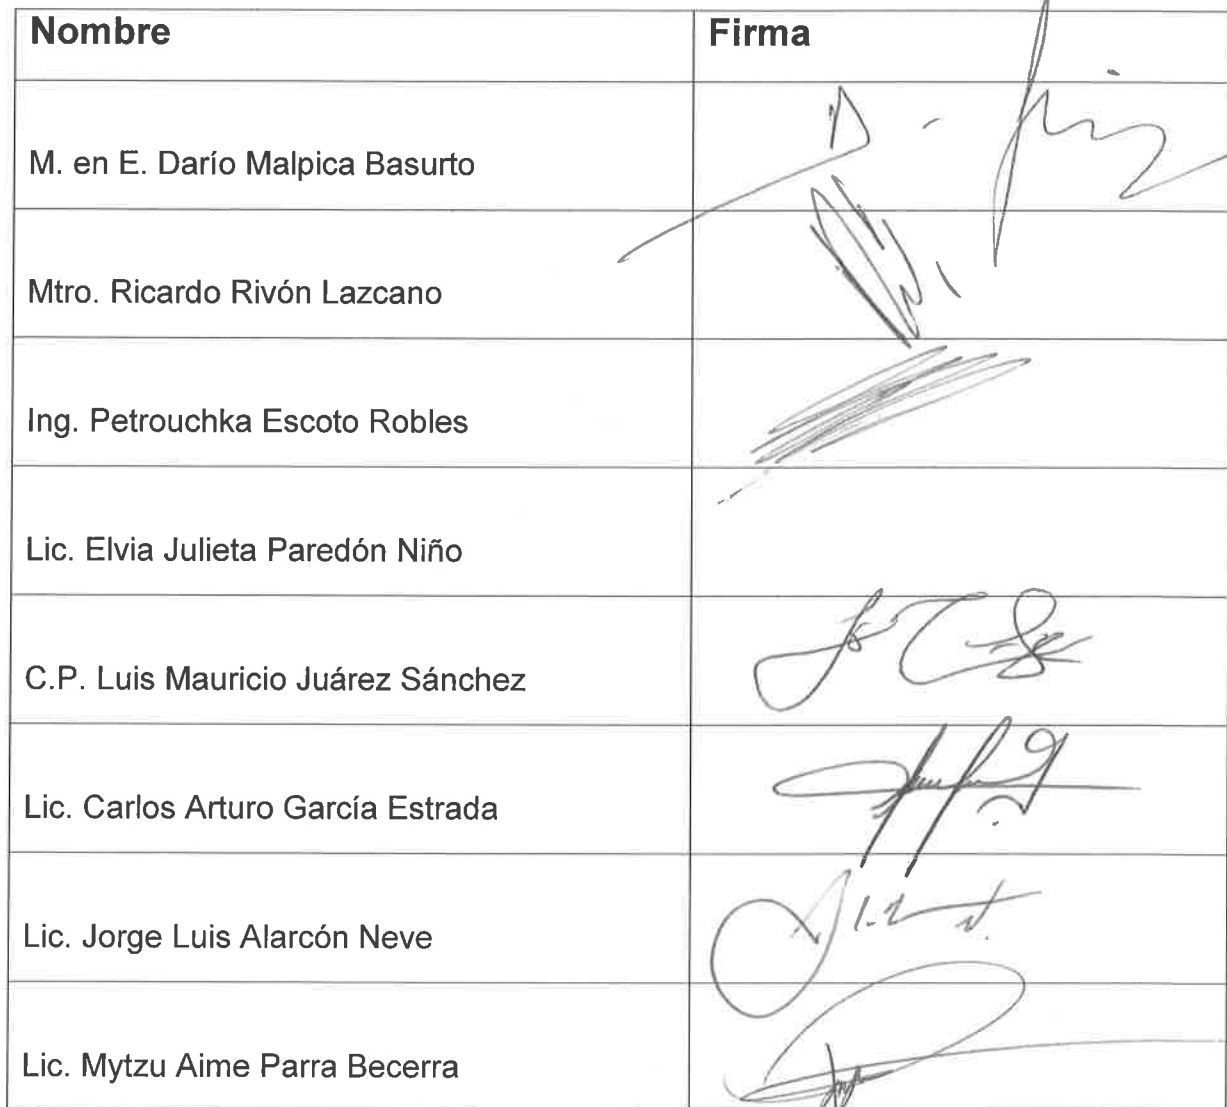 Nombre
Firma
M. en E. Darío Malpica Basurto
Mtro. Ricardo Rivón Lazcano
Ing. Petrouchka Escoto Robles
Lic. Elvia Julieta Paredón Niño
C.P. Luis Mauricio Juárez Sánchez
Lic. Carlos Arturo García Estrada
Lic. Jorge Luis Alarcón Neve
Lic. Mytzu Aime Parra Becerra